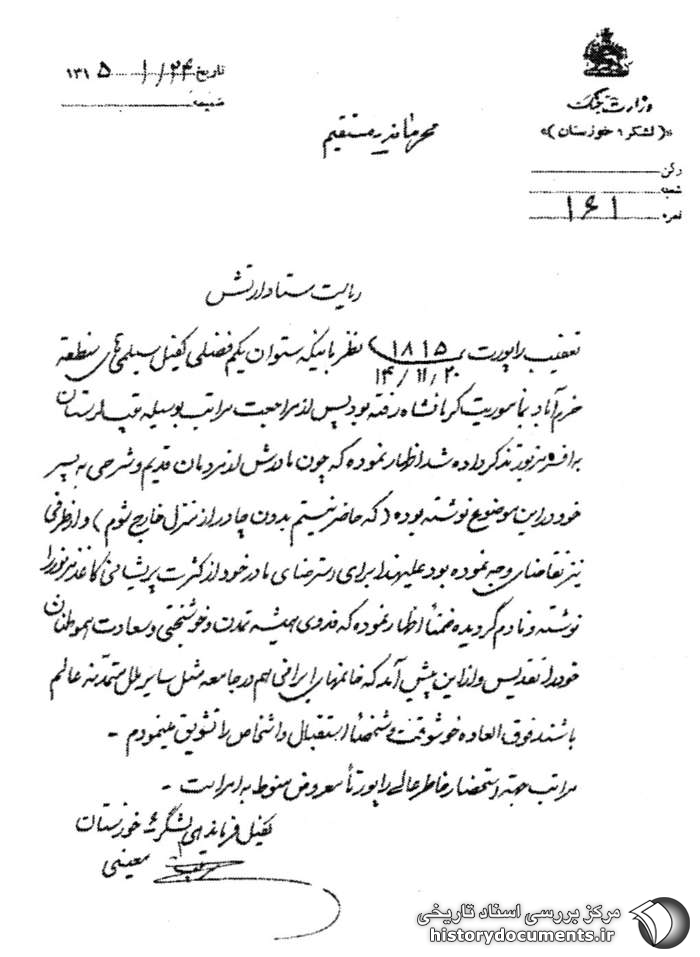 وزارت جنگ
«(لشکر ۶ خوزستان)»
رکن
شعبه
نمره ۱۶۱
تاریخ ۲۴/۱/ ۱۳۱۵
ضمیمه
محرمانه مستقیم
ریاست ستاد ارتش
تعقیب راپورت ۱۸۱۵ ۱۴/۱۱/۲۰ نظر باینکه ستوان یکم فضلی کفیل سیلمی های منطقه
خرم آباد بماموریت کرمانشاه رفته بود پس از مراجعت مراتب بوسیله تیپ لرستان
به افسر مزبور تذکر داده شد اظهار نموده که چون مادرش از مردمان قدیم و شرحی به پسر
خود در این موضوع نوشته بوده (که حاضر نیستم بدون چادر از منزل خارج شوم) و از طرفی
نیز تقاضای وجه نموده بود علیهذا برای استرضای مادر خود از کثرت پریشانی کاغذ مزبور را
نوشته و نادم گردیده ضمناً اظهار نموده که فدوی همیشه تمدن و خوشبختی و سعادت هموطنان
خود را تقدیس و از این پیش آمد که خانمهای ایرانی هم در جامعه مثل سایر ملل متمدنه عالم
باشند فوق العاده خوشوقت و شخصاً استقبال و اشخاص را تشویق مینمودم -
مراتب جهة استحضار خاطر عالی راپورتاً معروض منوط به امر است -
کفیل فرماندهی لشگر ۶ خوزستان
معینی
مرکز بررسی اسناد تاریخی
historydocuments.ir